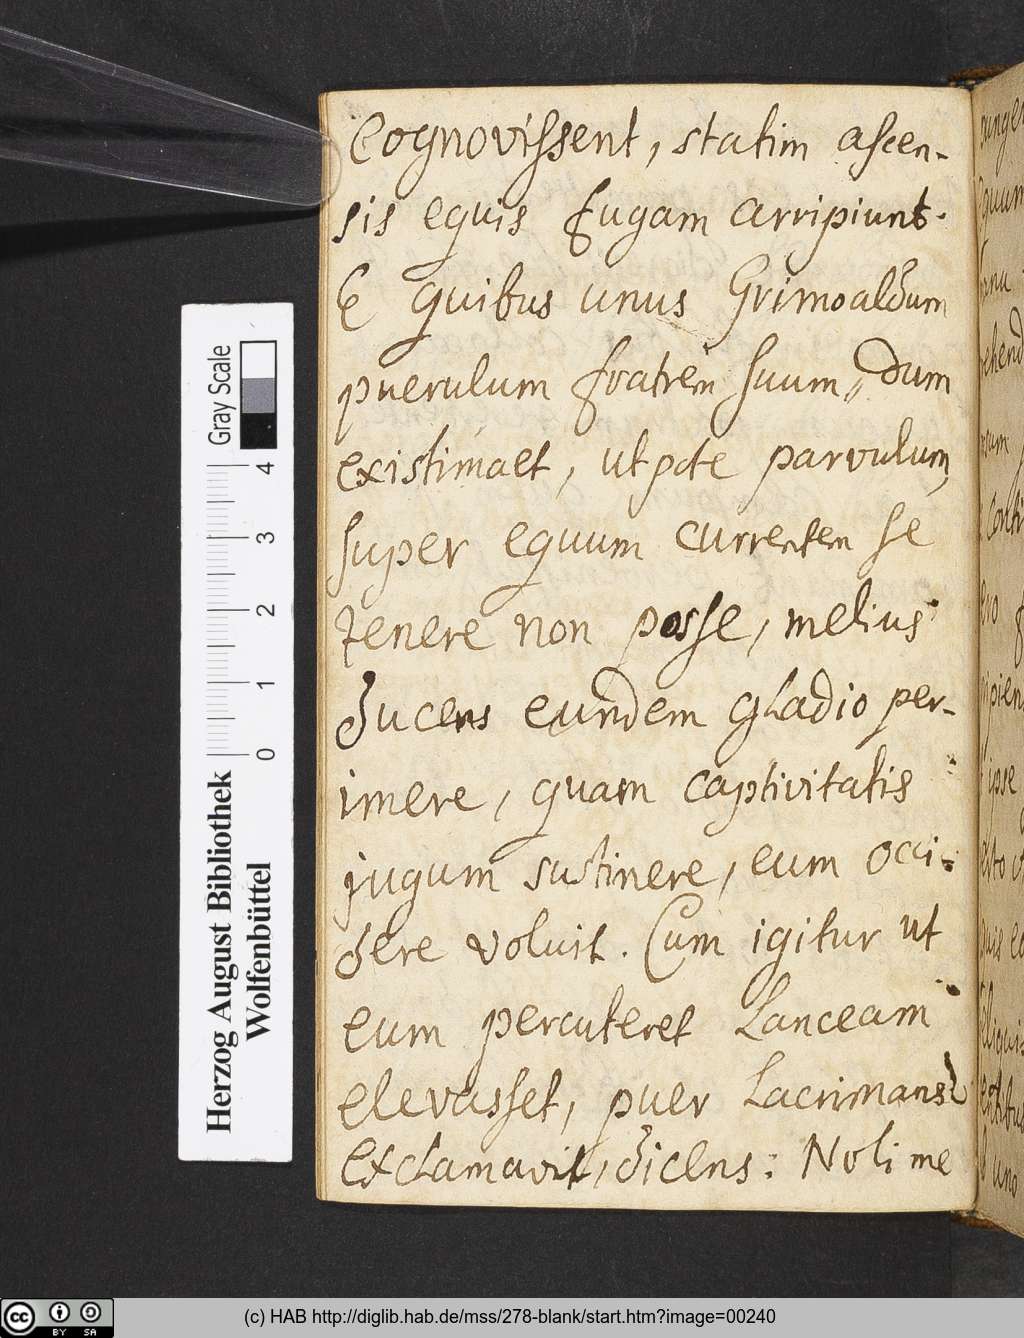 Cognovissent, statim ascen-
sis equis fugam arripiunt.
E quibus unus Grimoaldum
puerulum fratrem suum, dum
existimaet, utpote parvulum,
super equum currentem se
tenere non posse, melius
ducens eundem gladio per-
imere, quam captivitatis
jugum sustinere, eum occi-
dere voluit. Cum igitur ut
eum percuteret Lanceam
elevasset, puer Lacrimans
exclamavit, dicens: Noli me
Gray Scale
4
3
2
1
0
Herzog August Bibliothek
Wolfenbüttel
cc
BY SA
(c) HAB http://diglib.hab.de/mss/278-blank/start.htm?image=00240